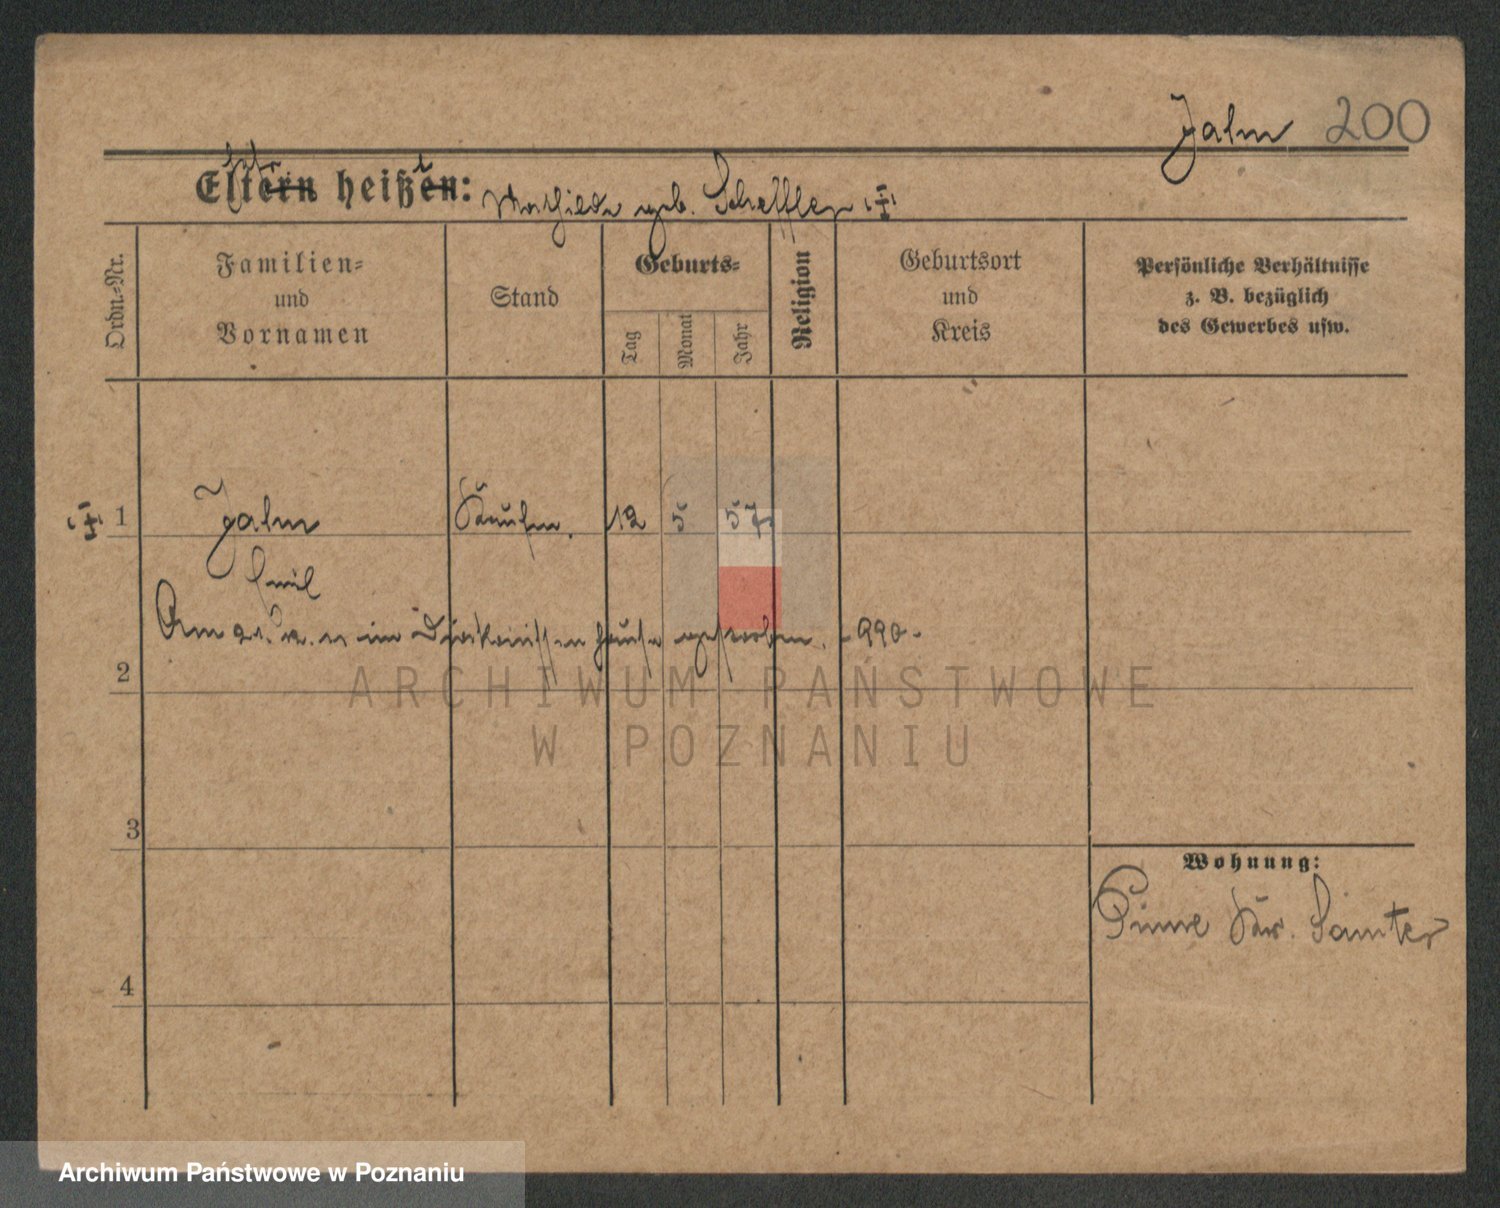 Jahn 200
Eltern heißen: Mathilde geb. Scheffler
Ordn.-Nr.
Familien-
und
Vornamen
Stand
Geburts-
Tag
Monat
Jahr
Religion
Geburtsort
und
Kreis
Persönliche Verhältnisse
z. B. bezüglich
des Gewerbes usw.
1 Jahn Kaufm. 12 5 57
Emil
Am 21. 12. 11 im Diakonissenhause gestorben. -990-
2
3
4
Wohnung:
Pinne Kr. Samter
ARCHIWUM PAŃSTWOWE
W POZNANIU
Archiwum Państwowe w Poznaniu